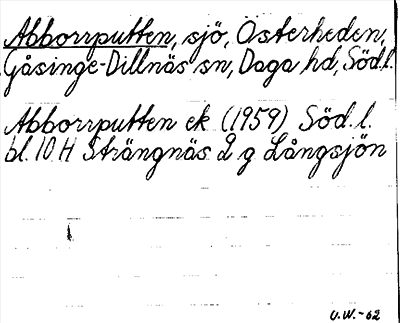 Abborrputten, sjö, Österheden,
Gåsinge-Dillnäs sn, Daga hd, Söd.l.
Abborrputten ek (1959) Söd. l.
bl. 10 H Strängnäs 2 g Långsjön
U.W.-62